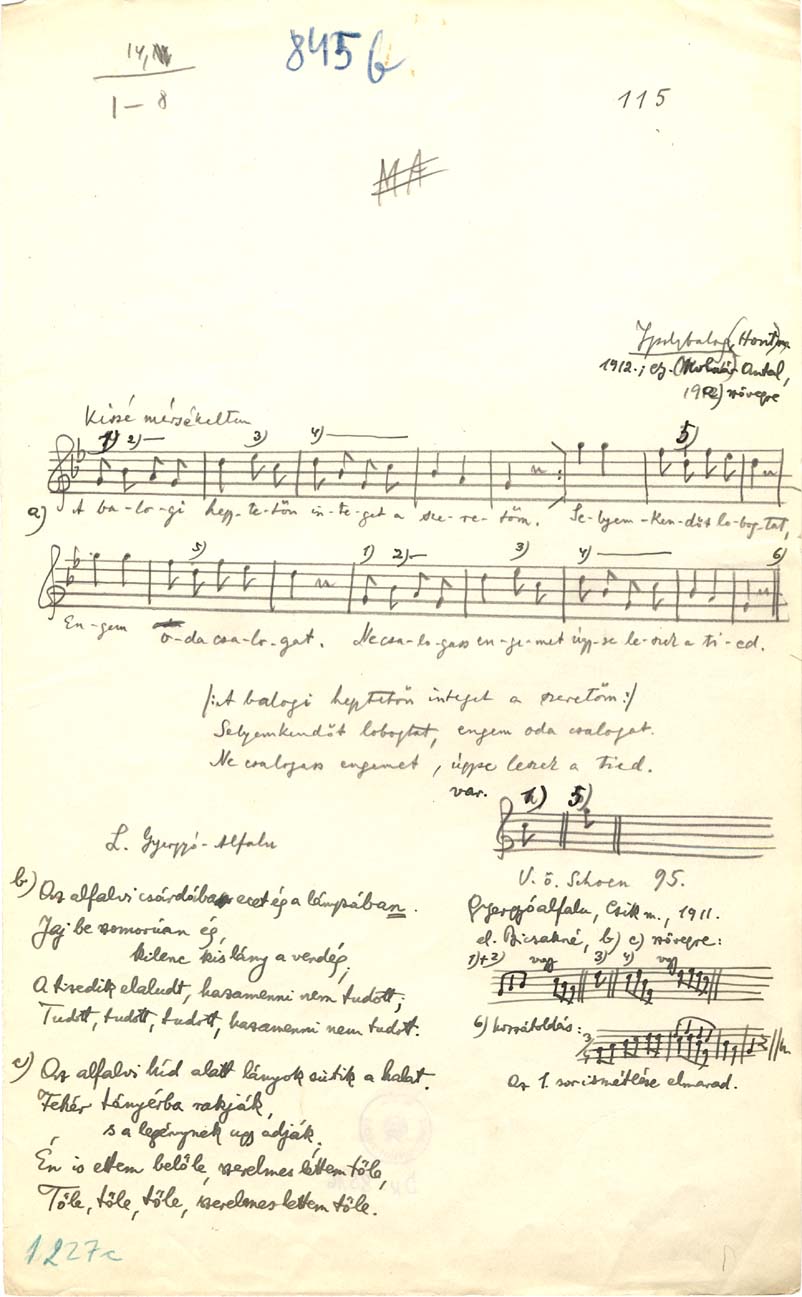 14,
845 b
1 – 8
115
MA
Ipolybalog (Hont)m.
1912.; ez. (Molnár) Antal,
1912) szövegre
Kissé mérsékelten
1) 2) 3) 4) 5)
a) A ba-lo-gi hegy-te-tőn in-te-get a sze-re-tőm. Se-lyem-ken-dőt lo-bog-tat,
5) 1) 2) 3) 4) 6)
En-gem o-da csa-lo-gat. Ne csa-lo-gass en-ge-met úgy-se le-szek a ti-ed.
/:A balogi hegytetőn integet a szeretőm:/
Selyemkendőt lobogtat, engem oda csalogat.
Ne csalogass engemet, úgyse leszek a tied.
var. 1) 5)
L. Gyergyó-Alfalu
V. ö. Schoen 95.
b) Az alfalvi csárdában ecet ég a lámpában.
Jaj be szomorúan ég,
kilenc kislány a vendég,
A tizedik elaludt, hazamenni nem tudott;
Tudott, tudott, tudott, hazamenni nem tudott.
Gyergyóalfalu, Csík m., 1911.
el. Bicsakné, b) c) szövegre:
1)+2) vagy 3) 4) vagy
6) hozzátoldás:
3
Az 1. sor ismétlése elmarad.
c) Az alfalvi híd alatt lányok sütik a halat.
Fehér tányérba rakják,
s a legénynek úgy adják,
Én is ettem belőle, szerelmes lettem tőle,
Tőle, tőle, tőle, szerelmes lettem tőle.
1227c